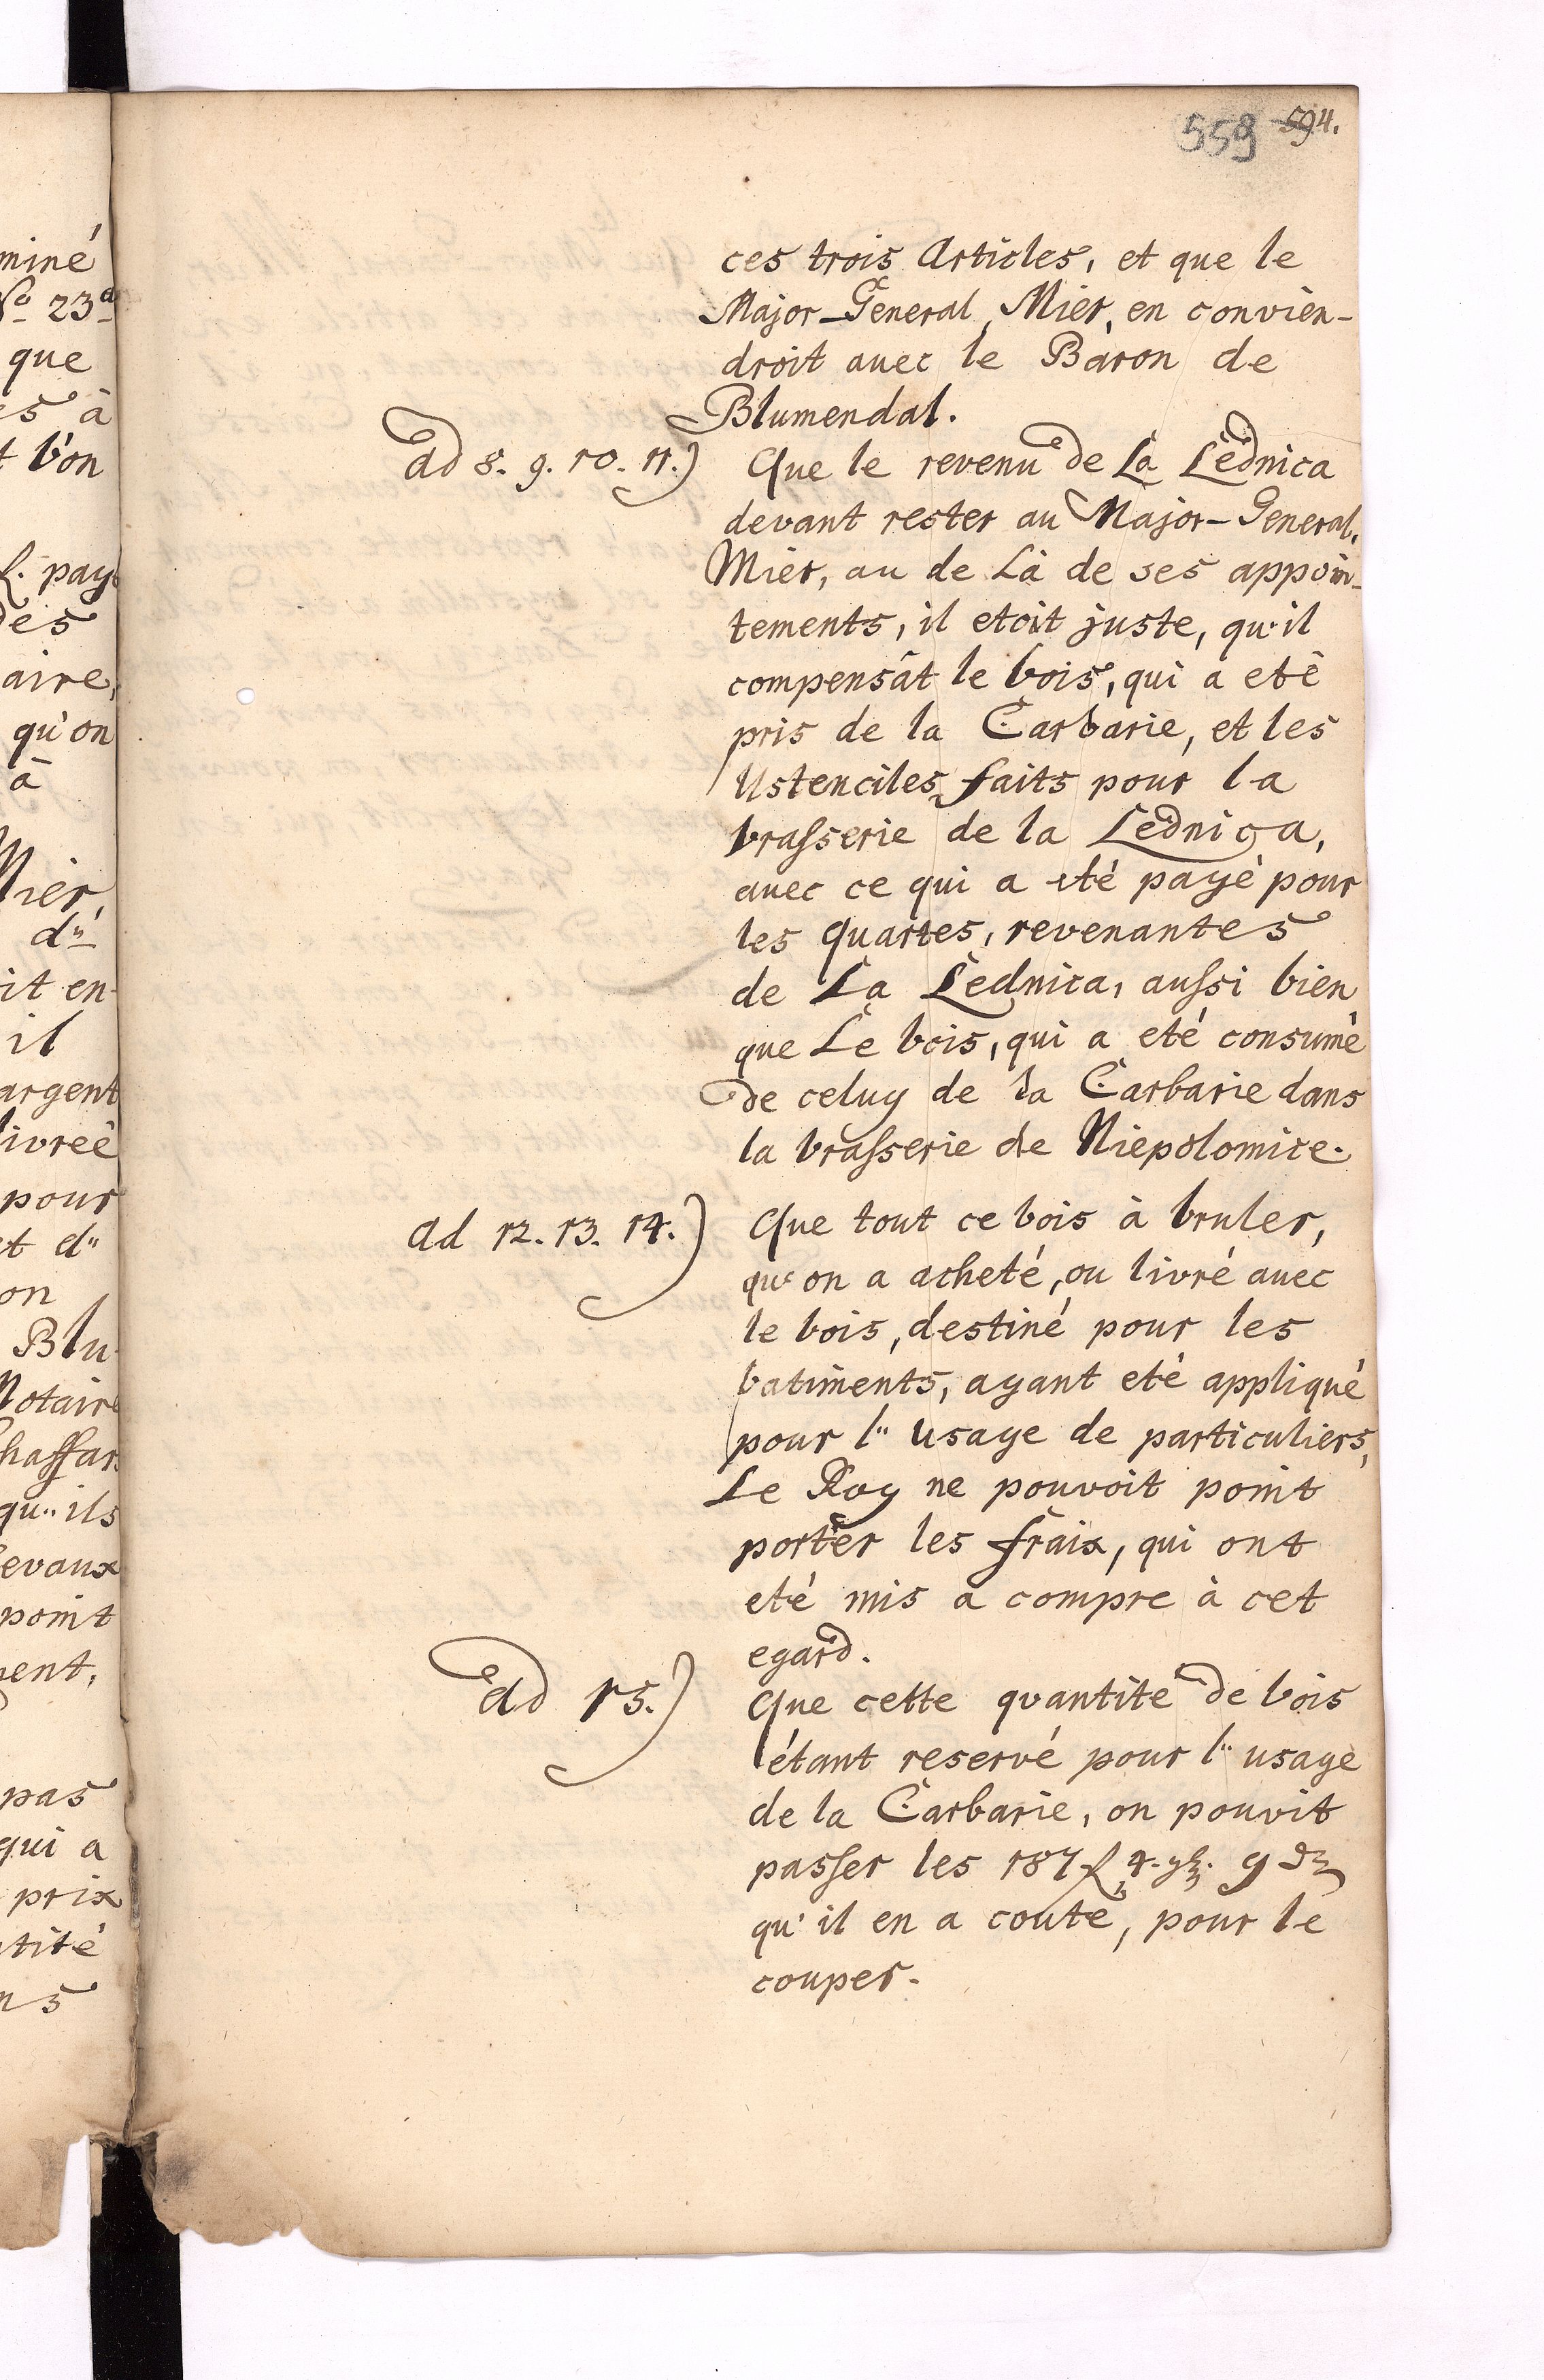 559 594.
ces trois Articles, et que le
Major-General Mier, en convien-
droit avec le Baron de
Blumendal.
ad 8. 9. 10. 11.) Que le revenu de La Lednica
devant rester au Major-General
Mier, au de Là de ses appoin-
tements, il etoit juste, qu'il
compensât le bois, qui a eté
pris de la Carbarie, et les
Ustenciles faits pour la
brasserie de la Lednica,
avec ce qui a eté payé pour
les quartes, revenantes
de La Lednica, aussi bien
que Le bois, qui a eté consumé
de celuy de la Carbarie dans
la brasserie de Niepolomice.
ad 12. 13. 14.) Que tout ce bois à bruler,
qu'on a acheté, ou livré avec
le bois, destiné pour les
batiments, ayant eté appliqué
pour l" usage de particuliers,
Le Roy ne pouvoit point
porter les fraix, qui ont
eté mis a compre à cet
egard.
ad 15.) Que cette quantité de bois
étant reservé pour l" usage
de la Carbarie, on pouvit
passer les 187 f 4. gl. 9 d
qu'il en a couté, pour le
couper.
miné
No 23
que
es à
t bon
f. pay
des
aire,
qu'on
à
Mier,
d"
it en-
il
argent
livreé
pour
et d"
on
Blu-
Notaire
haffar
qu" ils
evaux
point
ment,
pas
qui a
prix
ntité
ns